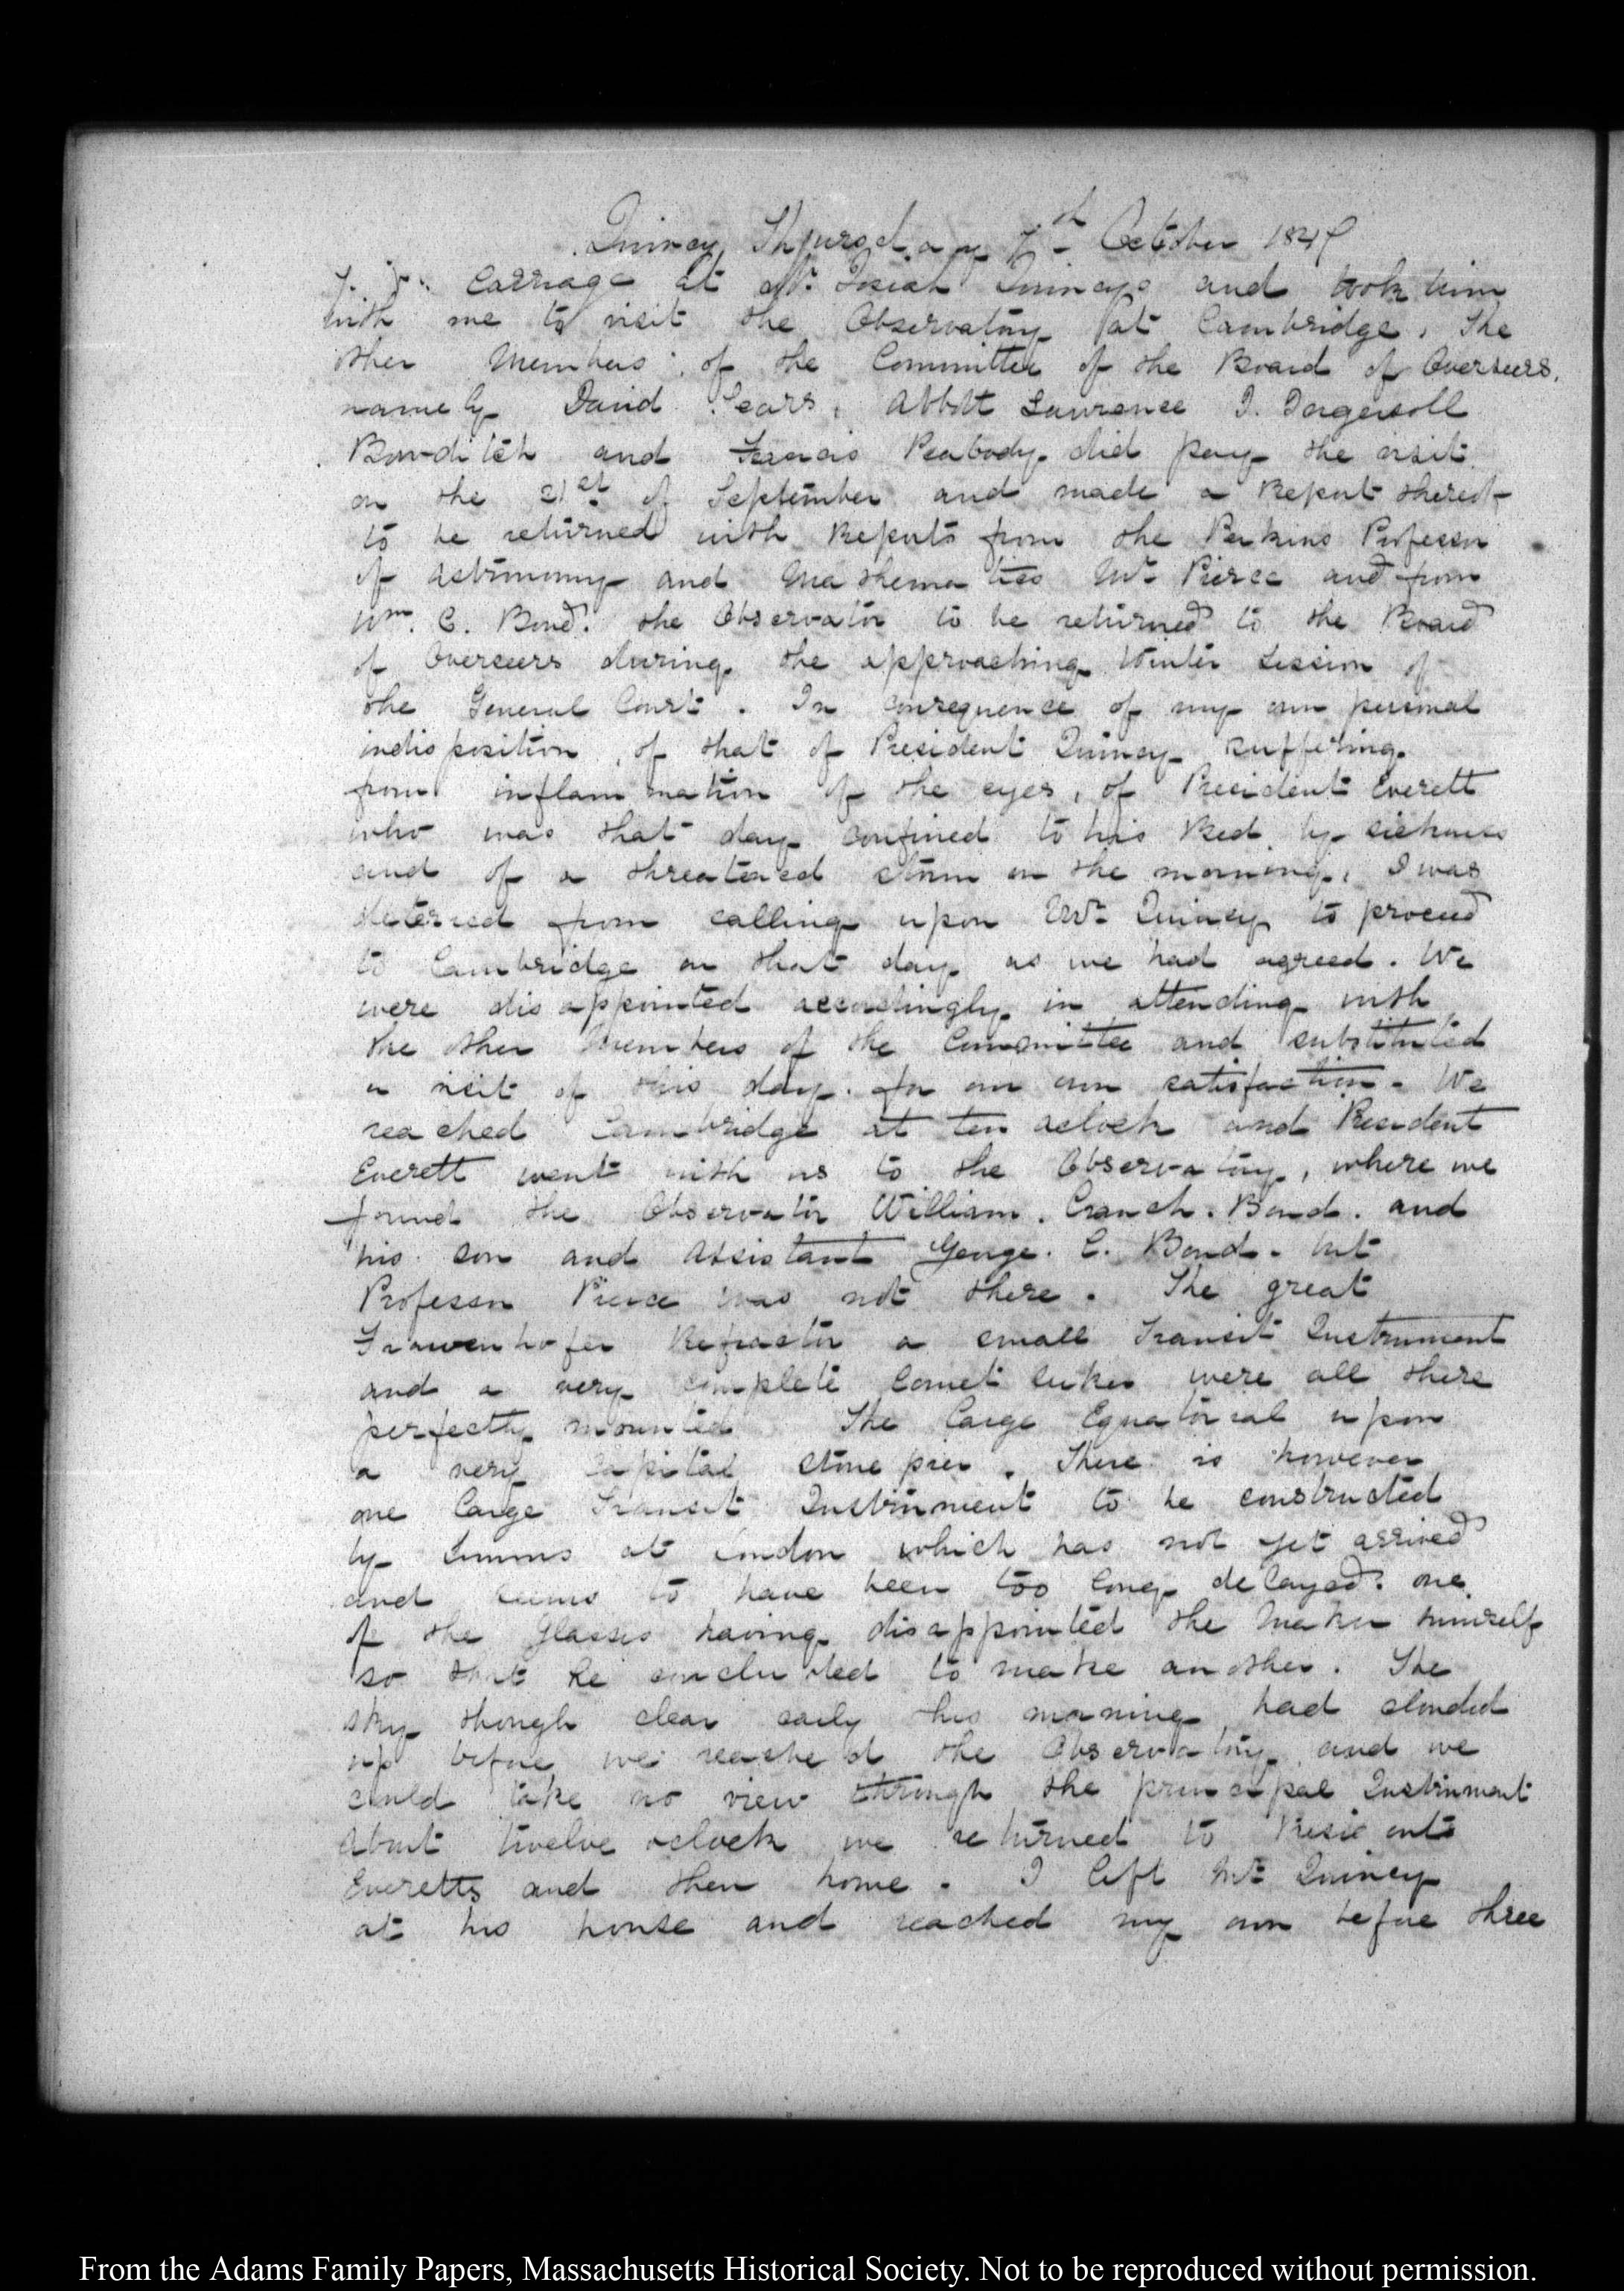 Quincy Thursday 7th October 1847
Carriage at Mr. Josiah Quincys and took him
with me to visit the Observatory at Cambridge. The
other Members of the Committee of the Board of Overseers,
namely David Sears, Abbott Lawrence I. Ingersoll
Bowditch and Francis Peabody did pay the visit
on the 21st of September and made a Report thereof
to be returned with Reports from the Perkins Professor
of Astronomy and Mathematics Mr. Pierce and from
Wm. C. Bond. the Observator to be returned to the Board
of Overseers during the approaching Winter Session of
the General Court. In consequence of my own personal
indisposition, of that of President Quincy suffering
from inflammation of the eyes, of President Everett
who was that day confined to his Bed by sickness
and of a threatened storm in the morning, I was
deterred from calling upon Mr. Quincy to proceed
to Cambridge on that day as we had agreed. We
were disappointed accordingly in attending with
the other Members of the Committee and substituted
a visit of this day for our own satisfaction. We
reached Cambridge at ten oclock and President
Everett went with us to the Observatory, where we
found the Observator William. Cranch. Bond. and
his son and Assistant George. C. Bond. but
Professor Pierce was not there. The great
Frawenhofer Refractor a small Transit Instrument
and a very complete Comet seeker were all there
perfectly mounted The large Equatorial upon
a very capital stone pier. There is however
one large Transit Instrument to be constructed
by Simms at London which has not yet arrived
and seems to have been too long delayed. one
of the Glasses having disappointed the Maker himself
so that he concluded to make another. The
sky though clear early this morning had clouded
up before we reached the Observatory and we
could take no view through the principal Instrument
About twelve oclock we returned to Presidents
Everetts and then home. I left Mr. Quincy
at his house and reached my own before three
From the Adams Family Papers, Massachusetts Historical Society. Not to be reproduced without permission.